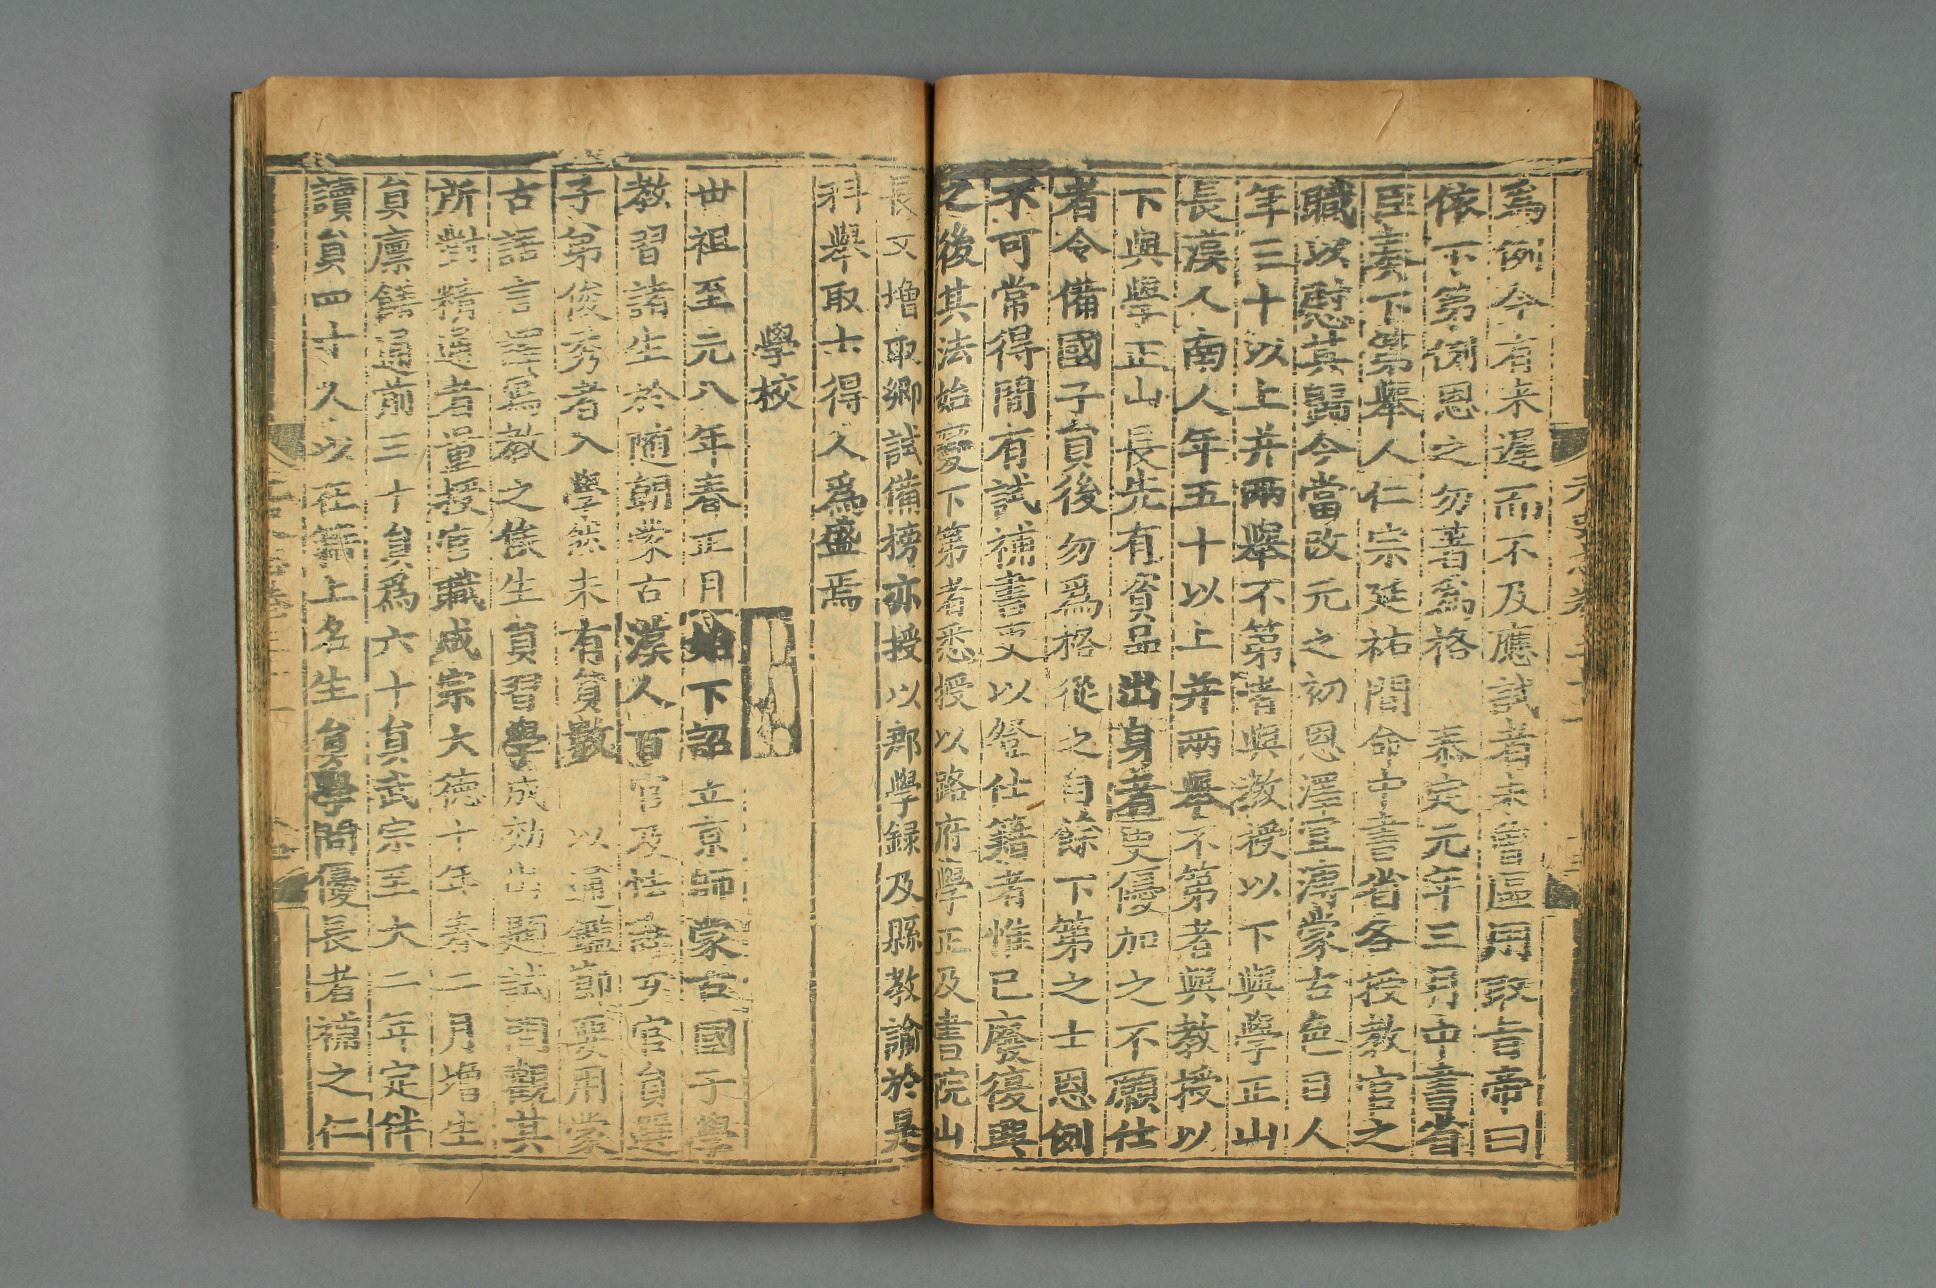 爲例今有来遲而不及應試者未曾區用取旨帝曰
依下第例恩之勿著爲格 泰定元年三月中書省
臣奏下第舉人仁宗延祐間命中書省各授教官之
職以慰其歸今當改元之初恩澤宜溥蒙古色目人
年三十以上并兩舉不第者與教授以下與學正山
長漢人南人年五十以上并兩舉不第者與教授以
下與學正山長先有資品出身者更優加之不願仕
者令備國子員後勿爲格從之自餘下第之士恩例
不可常得間有試補書吏以登仕籍者惟已廢復興
之後其法始變下第者悉授以路府學正及書院山
長又增取鄉試備榜亦授以郡學錄及縣教諭於是
科舉取士得人爲盛焉
學校
世祖至元八年春正月始下詔立京師蒙古國子學
教習諸生於随朝蒙古漢人百官及怯薛歹官員選
子弟俊秀者入學然未有員數以通鑑節要用蒙
古語言譯寫教之俟生員習學成効出題試問觀其
所對精通者量授官職成宗大德十年春二月增生
員廩餼通前三十員爲六十員武宗至大二年定伴
讀員四十人以在籍上名生員學問優長者補之仁